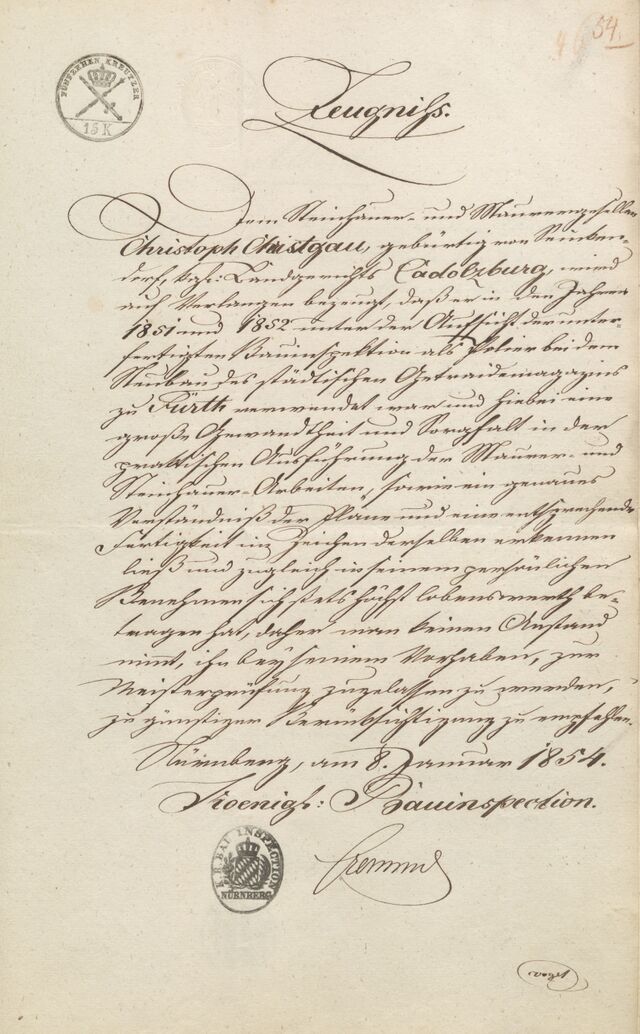 54.
FÜNFZEHEN KREUTZER
15 K
Zeugniß.
Dem Steinhauer- und Maurergesellen
Christoph Christgau, gebürtig von Seuken-
dorf, kgl: Landgerichts Cadolzburg, wird
auf Verlangen bezeugt, daß er in den Jahren
1851 und 1852 unter der Aufsicht der unter-
fertigten Bauinspektion als Polier bei dem
Neubau des städtischen Getraidemagazins
zu Fürth verwendet war und hiebei eine
große Gewandtheit und Sorgfalt in der
praktischen Ausführung der Maurer- und
Steinhauer-Arbeiten, sowie ein genaues
Verständniß der Pläne und eine entsprechende
Fertigkeit im Zeichen derselben erkennen
ließ und zugleich in seinem persönlichen
Benehmen sich stets höchst lobenswerth be-
tragen hat, daher man keinen Anstand
nimt, ihn bey seinem Vorhaben, zur
Meisterprüfung zugelassen zu werden,
zu günstiger Berücksichtigung zu empfehlen.
Nürnberg, am 8. Januar 1854.
Koenigl: Bauinspection.
K. B. BAU INSPECTION
NÜRNBERG